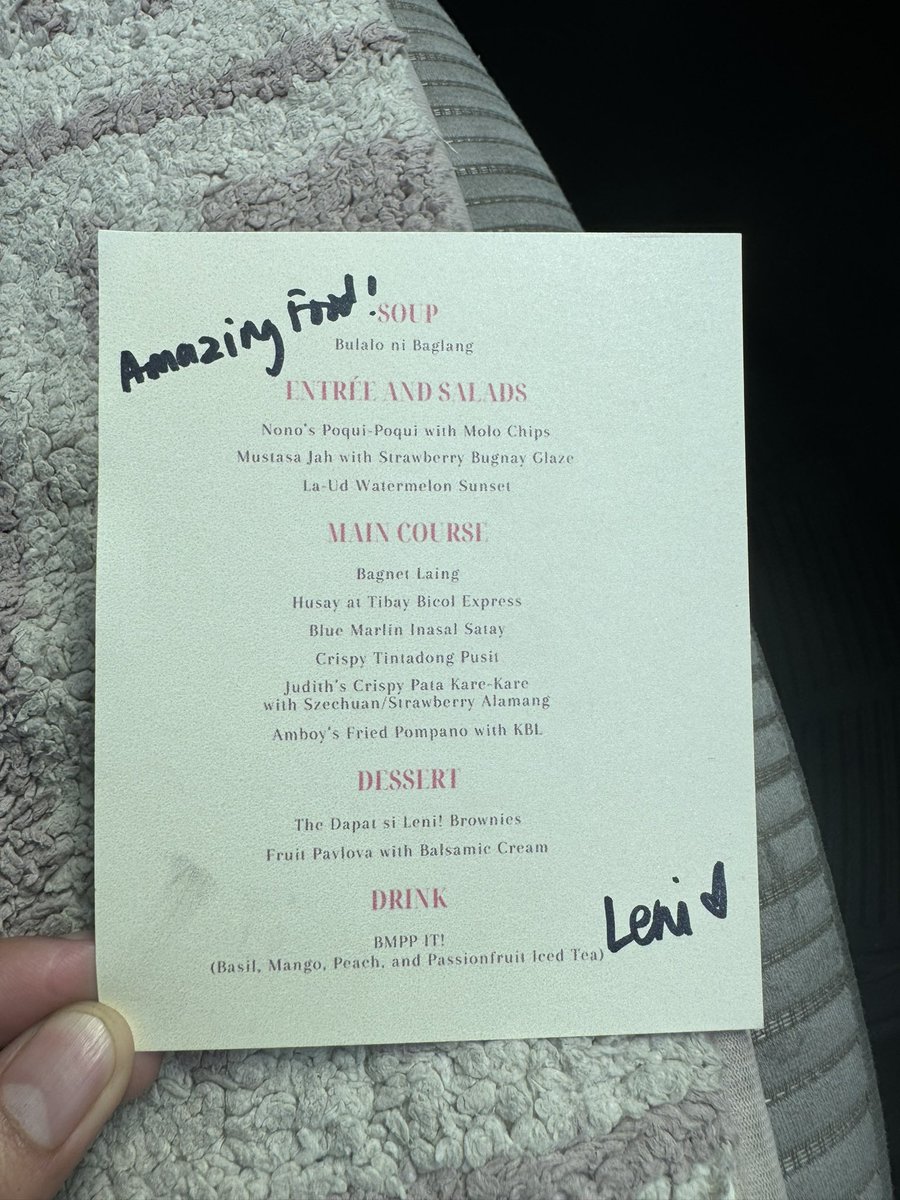 Amazing Food!
SOUP
Bulalo ni Baglang
ENTRÉE AND SALADS
Nono's Poqui-Poqui with Molo Chips
Mustasa Jah with Strawberry Bugnay Glaze
La-Ud Watermelon Sunset
MAIN COURSE
Bagnet Laing
Husay at Tibay Bicol Express
Blue Marlin Inasal Satay
Crispy Tintadong Pusit
Judith's Crispy Pata Kare-Kare
with Szechuan/Strawberry Alamang
Amboy's Fried Pompano with KBL
DESSERT
The Dapat si Leni! Brownies
Fruit Pavlova with Balsamic Cream
DRINK
BMPP IT!
(Basil, Mango, Peach, and Passionfruit Iced Tea)
Leni